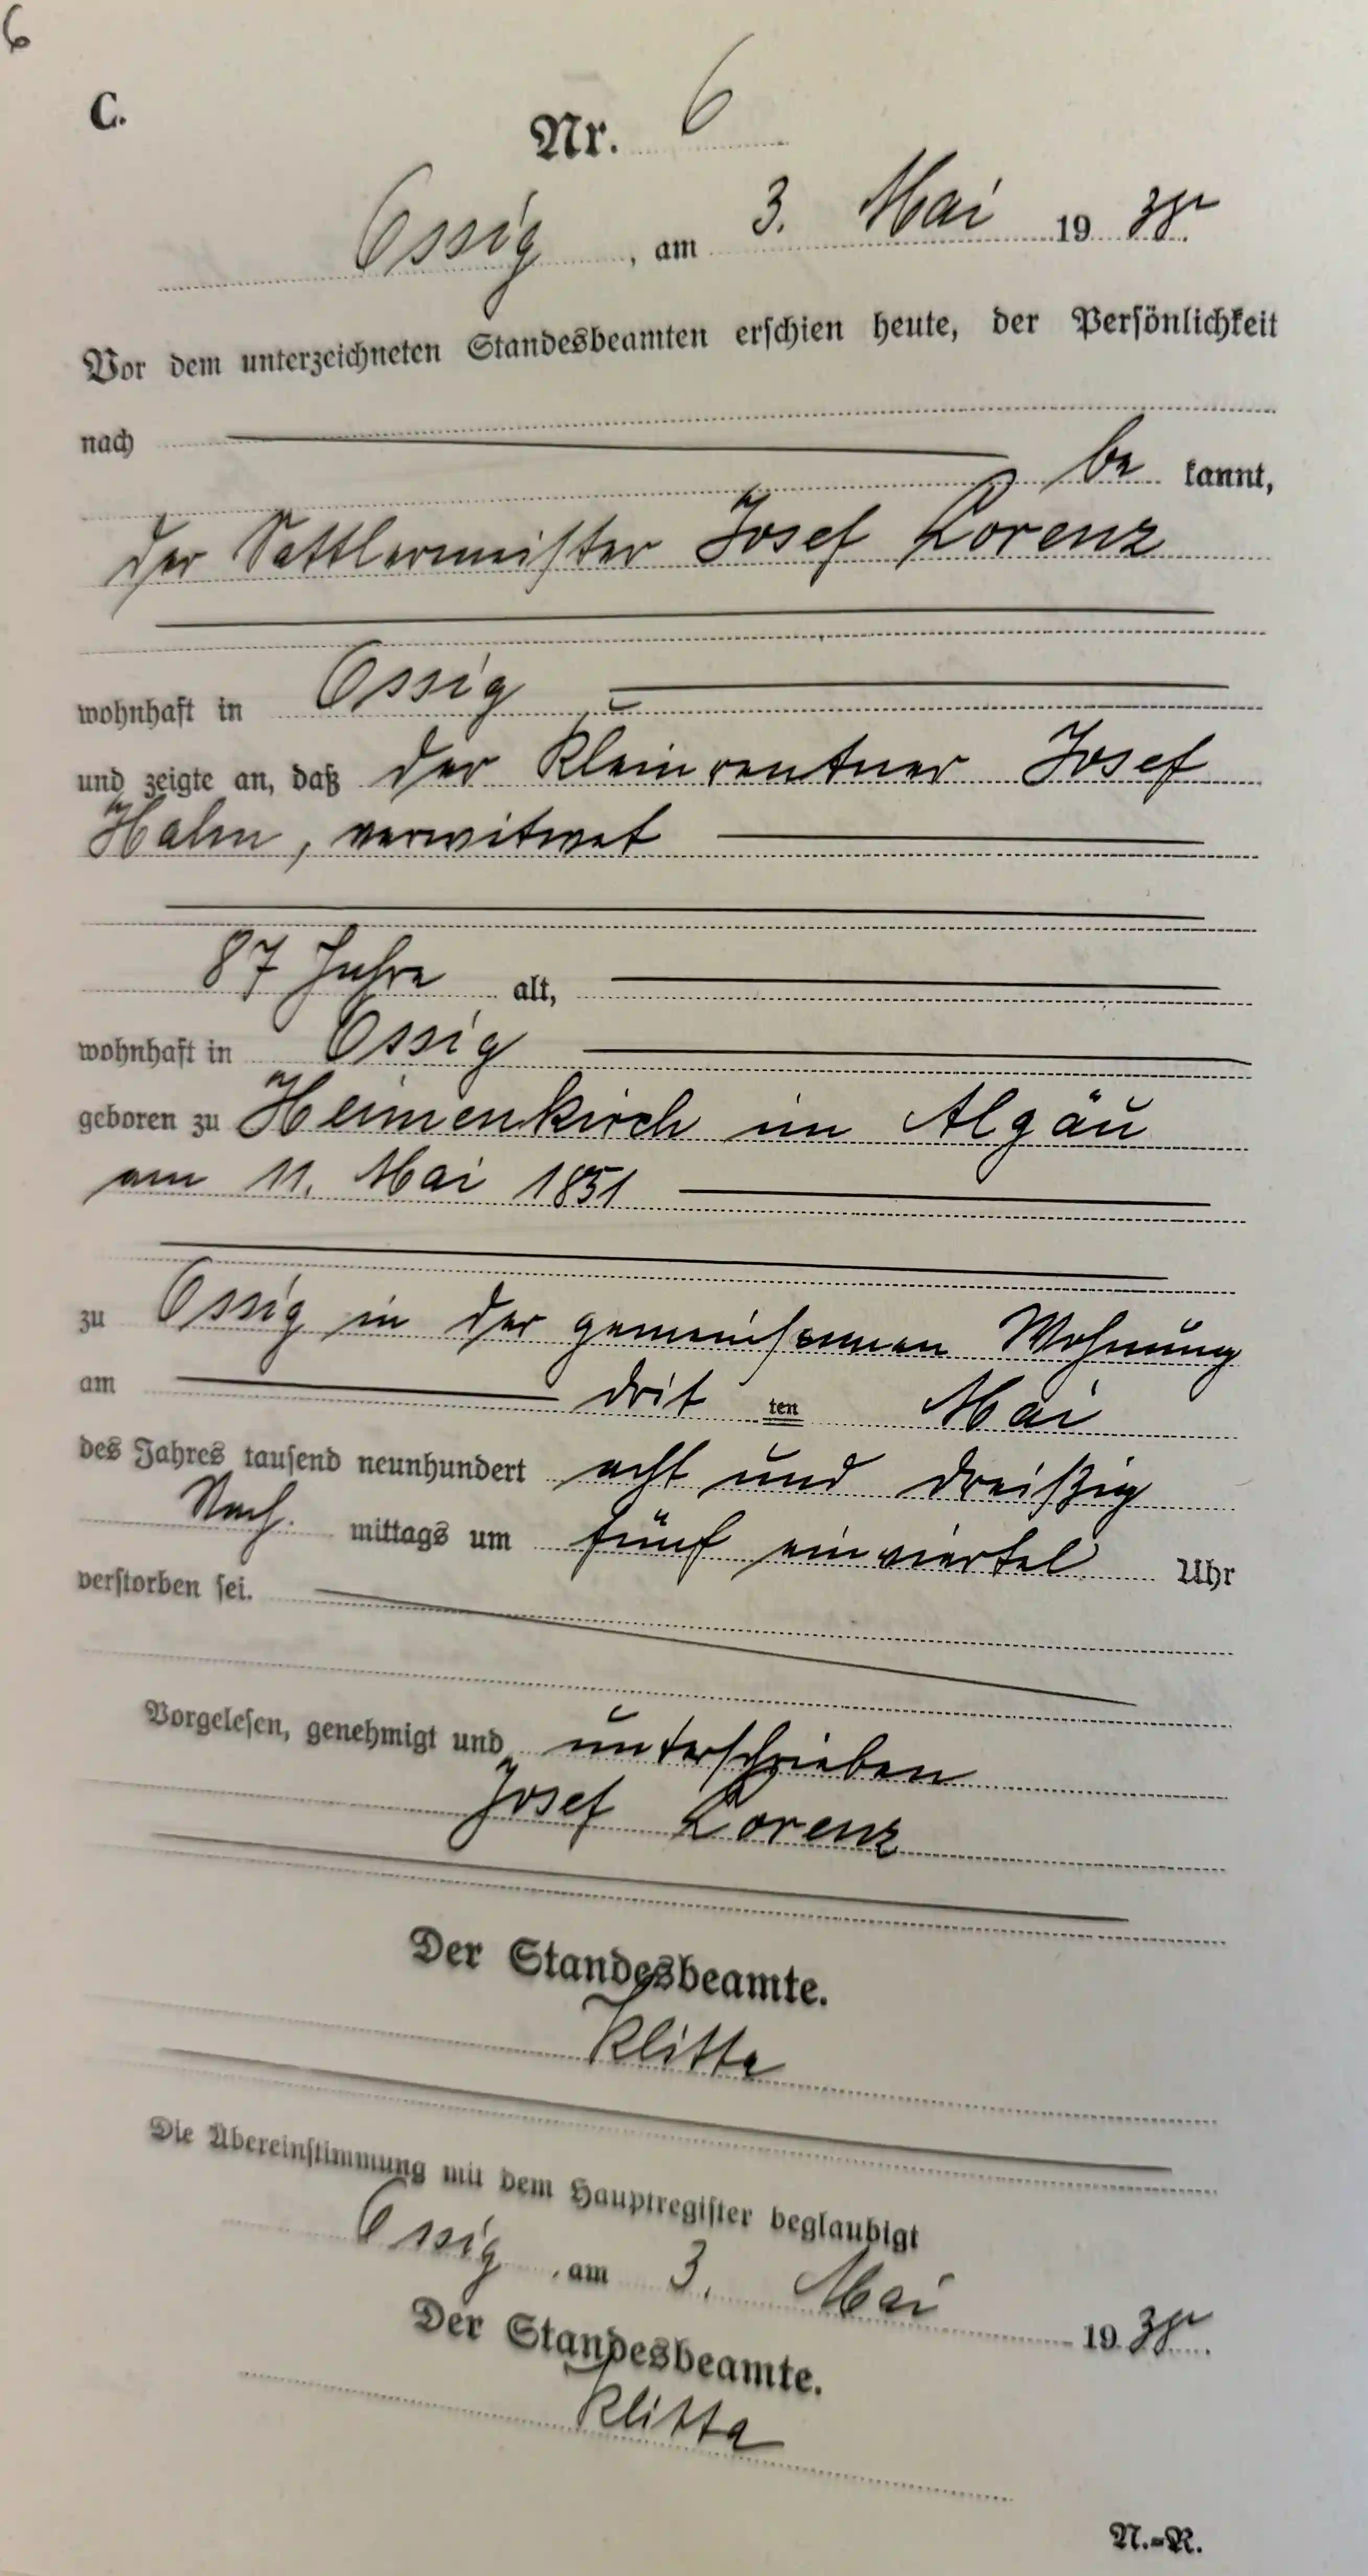 6
C.
Nr. 6
Ossig, am 3. Mai 1938.
Vor dem unterzeichneten Standesbeamten erschien heute, der Persönlichkeit
nach
be kannt,
der Sattlermeister Josef Lorenz
wohnhaft in Ossig
und zeigte an, daß der Kleinrentner Josef
Halm, verwitwet
87 Jahre alt,
wohnhaft in Ossig
geboren zu Heimenkirch im Algäu
am 11. Mai 1851
zu Ossig in der gemeinsamen Wohnung
am drit ten Mai
des Jahres tausend neunhundert acht und dreißig
Nach. mittags um fünf einviertel Uhr
verstorben sei.
Vorgelesen, genehmigt und unterschrieben
Josef Lorenz
Der Standesbeamte.
Klitta
Die Übereinstimmung mit dem Hauptregister beglaubigt
Ossig, am 3. Mai 1938.
Der Standesbeamte.
Klitta
N.=R.